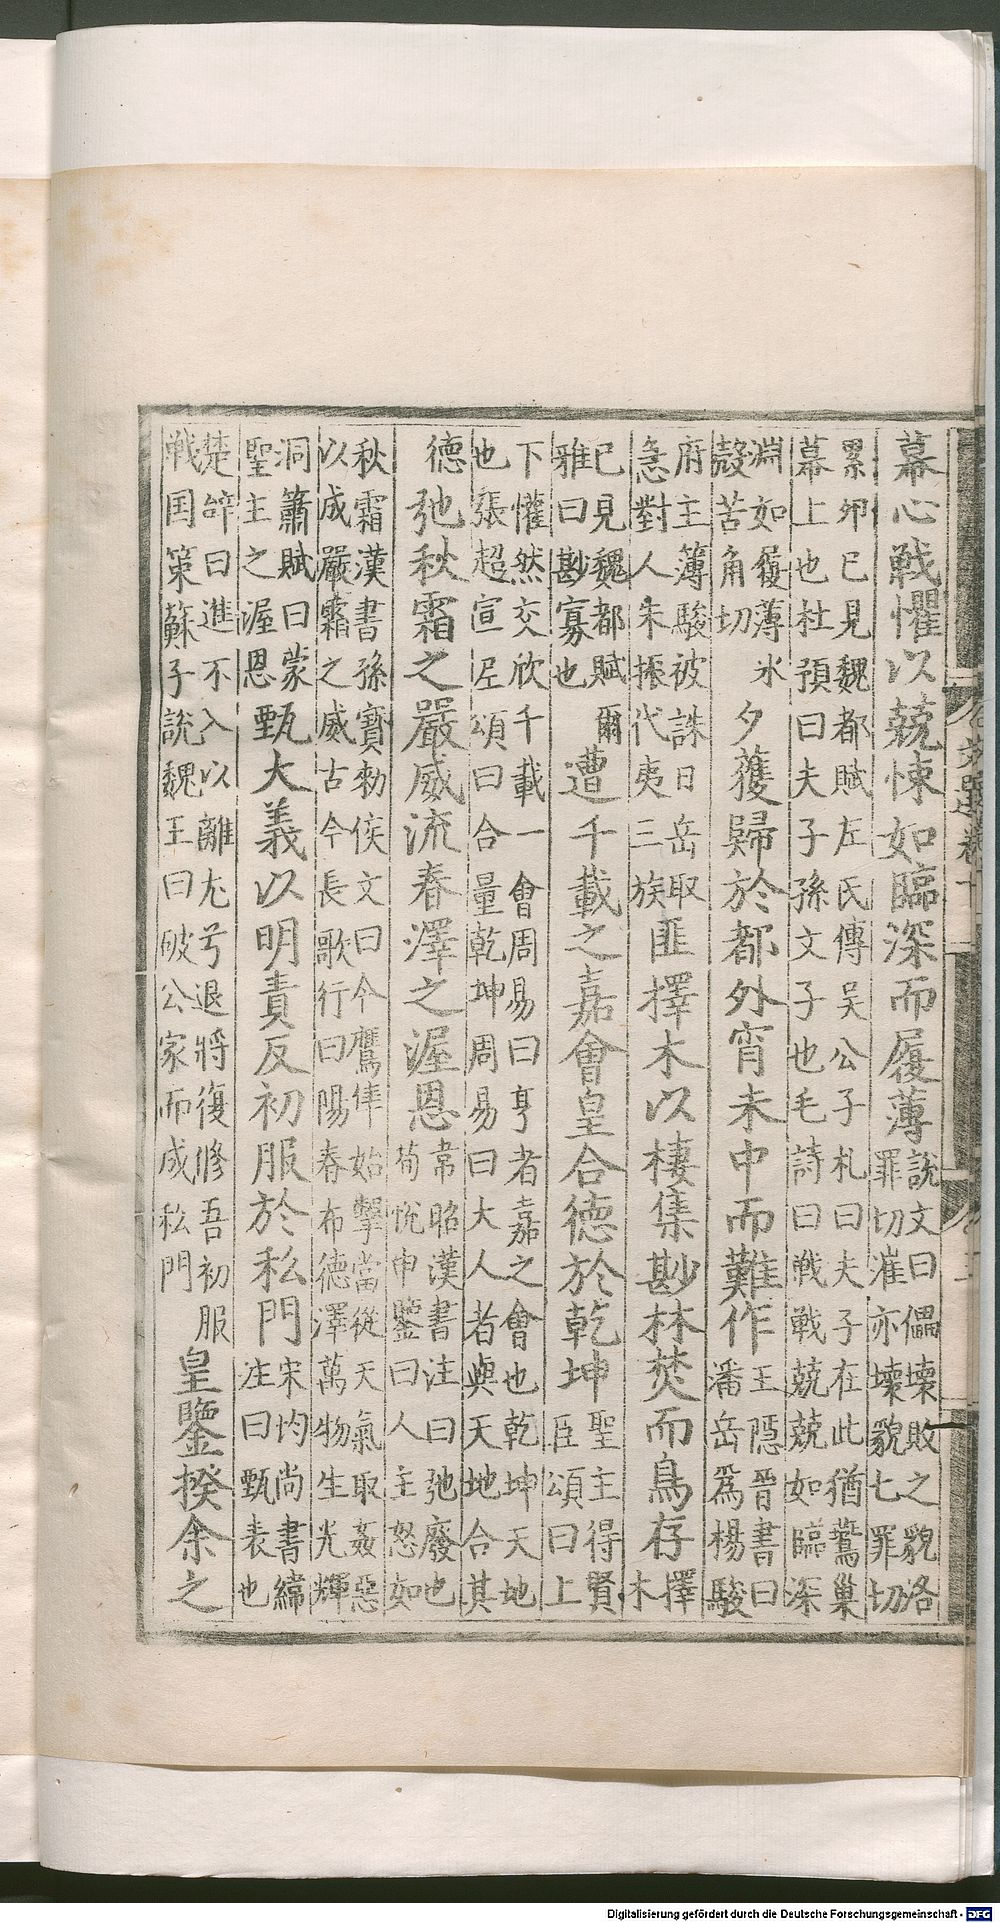 幕心戰懼以兢悚如臨深而履薄說文曰儡壞敗之貌洛
罪切漼亦壞貌七罪切
累卵已見魏都賦左氏傳吳公子札曰夫子在此猶鷰巢
幕上也杜預曰夫子孫文子也毛詩曰戰戰兢兢如臨深
淵如履薄氷
殼苦角切
夕蒦歸於都外宵未中而難作王隱晉書曰
潘岳爲楊駿
府主簿駿被誅日岳取
急對人朱振代夷三族
匪擇木以棲集尠林焚而鳥存擇
木
已見魏都賦爾
雅曰尠寡也
遭千載之嘉會皇合德於乾坤聖主得賢
臣頌曰上
下懽然交欣千載一會周易曰亨者嘉之會也乾坤天地
也張超宣尼頌曰合量乾坤周易曰大人者與天地合其
德
弛秋霜之嚴威流春澤之渥恩韋昭漢書注曰弛廢也
荀悅申鑒曰人主怒如
秋霜漢書孫寶勑侯文曰今鷹隼始擊當從天氣取姦惡
以成嚴霜之威古今長歌行曰陽春布德澤萬物生光輝
洞簫賦曰蒙
聖主之渥恩
甄大義以明責反初服於私門宋均尚書緯
注曰甄表也
楚辝曰進不入以離尤兮退將復修吾初服
戰国策蘇子說魏王曰破公家而成私門
皇鑒揆余之
Digitalisierung gefördert durch die Deutsche Forschungsgemeinschaft - DFG